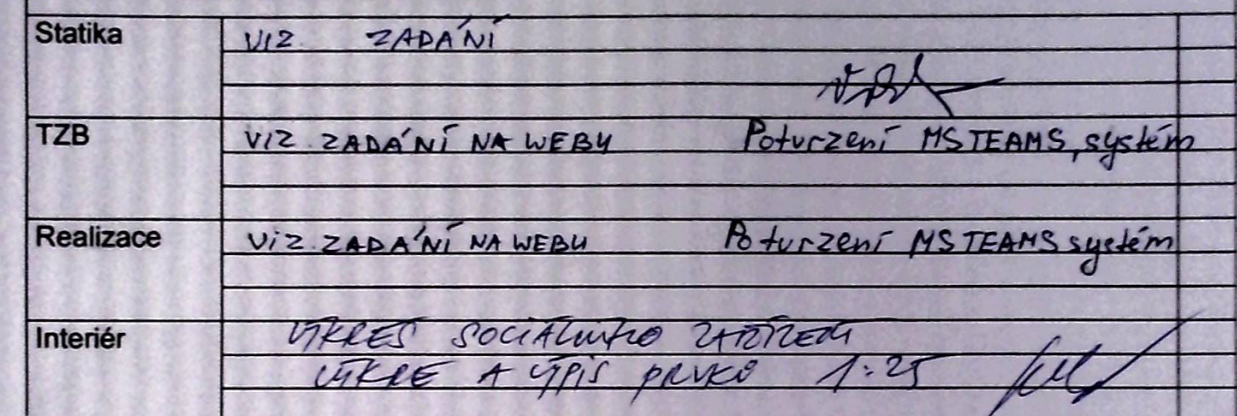 Statika VIZ ZADÁNÍ
TZB VIZ ZADÁNÍ NA WEBU Potvrzení MS TEAMS, systém
Realizace VIZ ZADÁNÍ NA WEBU Potvrzení MS TEAMS systém
Interiér VÝKRES SOCIÁLNÍHO ZAŘÍZENÍ
VÝKRE A VÝPIS PRVKŮ 1:25